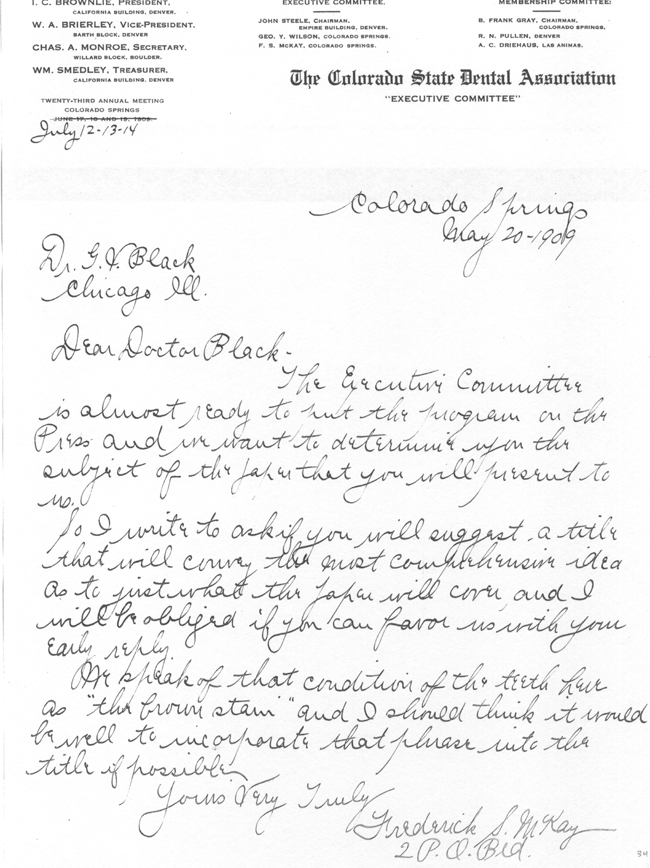 I. C. BROWNLIE, PRESIDENT,
CALIFORNIA BUILDING, DENVER.
W. A. BRIERLEY, VICE-PRESIDENT.
BARTH BLOCK, DENVER
CHAS. A. MONROE, SECRETARY,
WILLARD BLOCK, BOULDER.
WM. SMEDLEY, TREASURER.
CALIFORNIA BUILDING, DENVER
EXECUTIVE COMMITTEE.
JOHN STEELE, CHAIRMAN,
EMPIRE BUILDING, DENVER.
GEO. Y. WILSON, COLORADO SPRINGS.
F. S. McKAY, COLORADO SPRINGS.
MEMBERSHIP COMMITTEE:
B. FRANK GRAY, CHAIRMAN,
COLORADO SPRINGS.
R. N. PULLEN, DENVER
A. C. DRIEHAUS, LAS ANIMAS.
The Colorado State Dental Association
"EXECUTIVE COMMITTEE"
TWENTY-THIRD ANNUAL MEETING
COLORADO SPRINGS
JUNE 17, 18 AND 19, 1909.
July 12-13-14
Colorado Springs
May 20-1909
Dr. G. V. Black
Chicago Ill.
Dear Doctor Black-
The Executive Committee
is almost ready to put the program on the
Press and we want to determine upon the
subject of the paper that you will present to
us.
So I write to ask if you will suggest a title
that will convey the most comprehensive idea
as to just what the paper will cover, and I
will be obliged if you can favor us with your
early reply.
We speak of that condition of the teeth here
as "the brown stain" and I should think it would
be well to incorporate that phrase into the
title if possible.
Yours Very Truly
Frederick S. McKay
2 P. O. Bld.
34